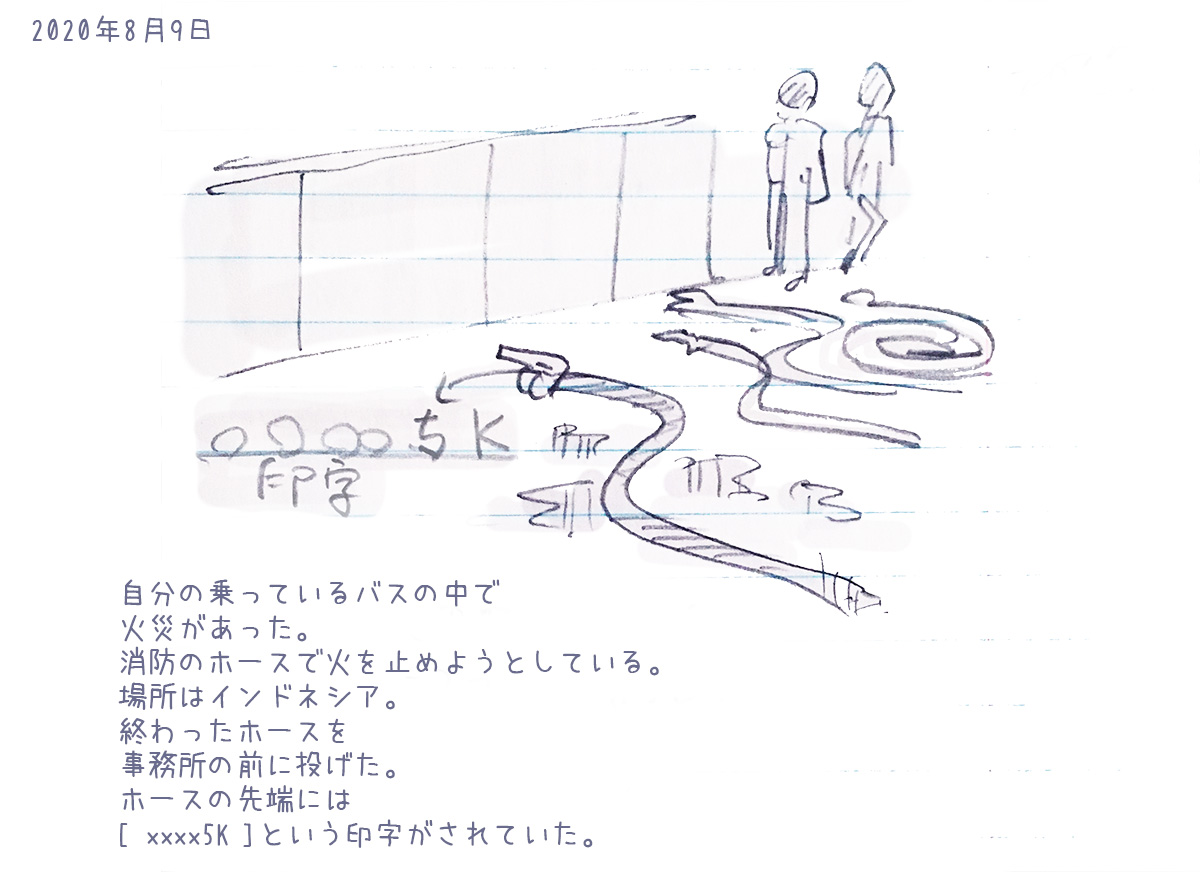 2020年8月9日
○○○○5K
印字
自分の乗っているバスの中で
火災があった。
消防のホースで火を止めようとしている。
場所はインドネシア。
終わったホースを
事務所の前に投げた。
ホースの先端には
[ xxxx5K ]という印字がされていた。